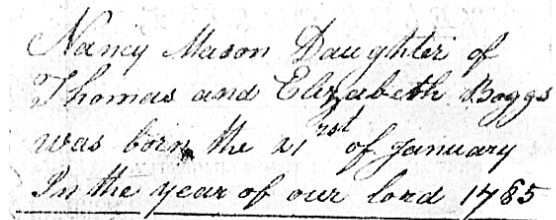 Nancy Mason Daughter of
Thomas and Elizabeth Boggs
was born the 21rst of January
In the year of our lord 1785